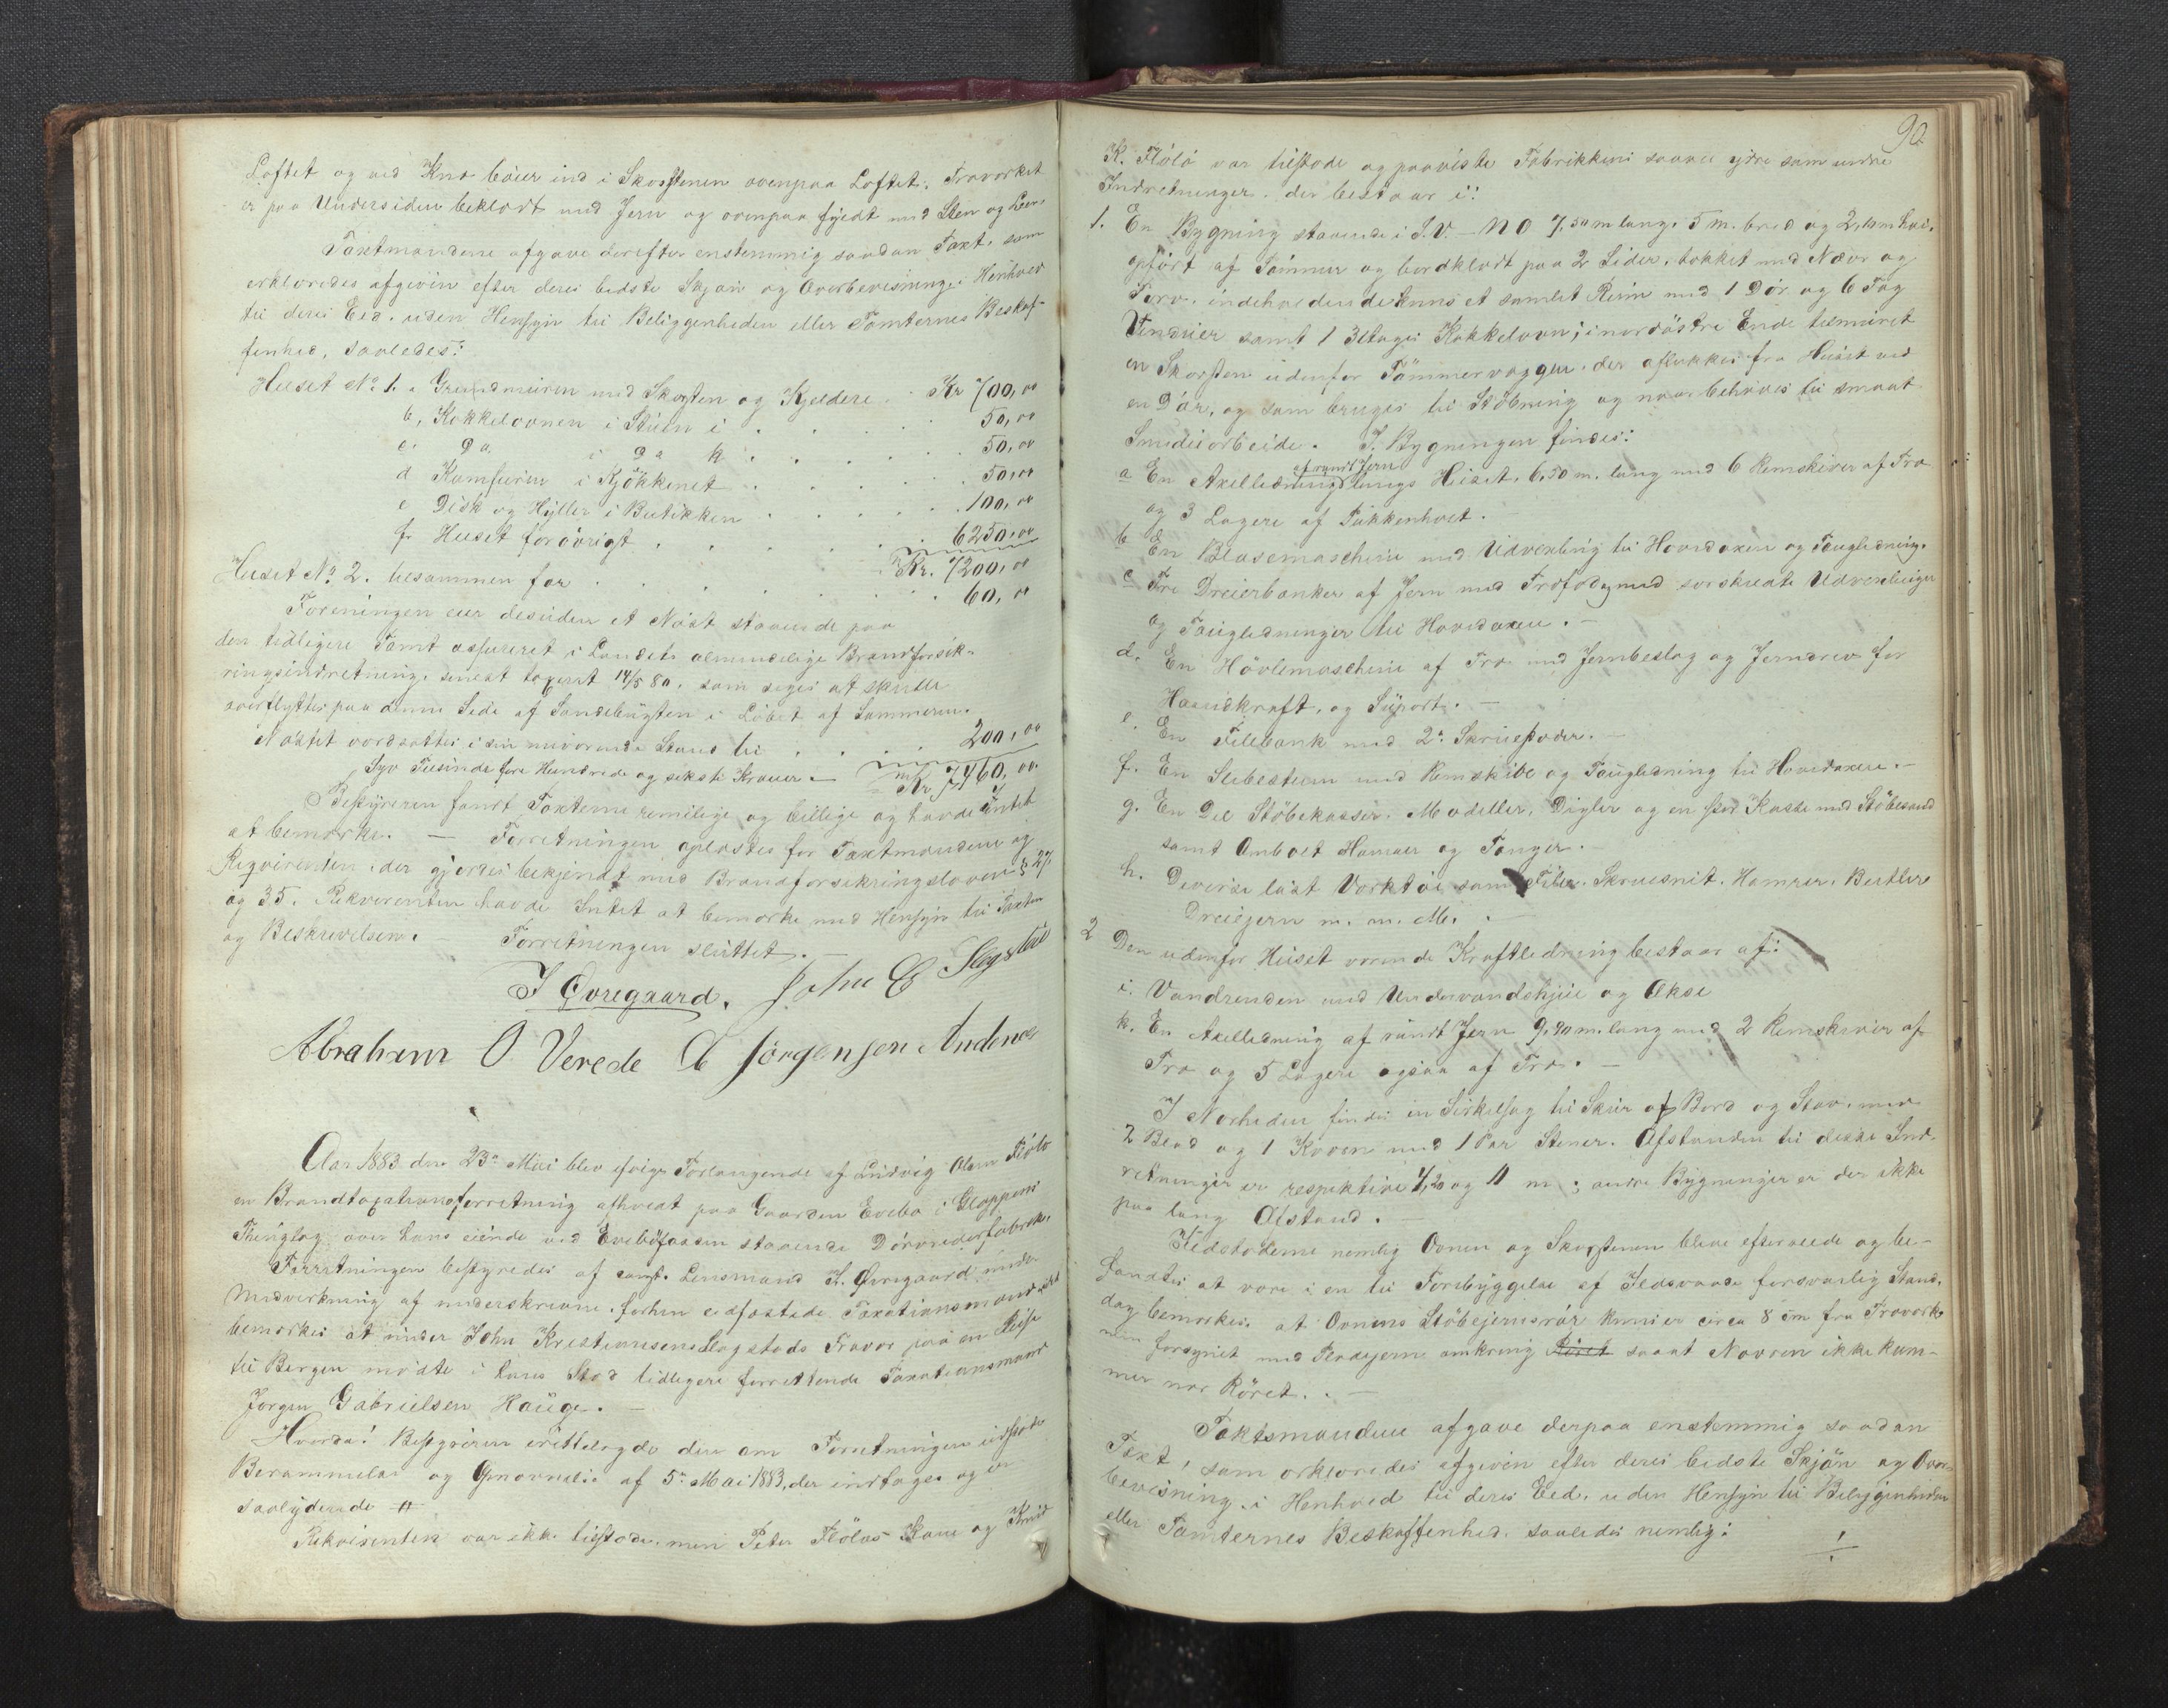 Loftet og ved Knæ böier ind i Skorstenen ovenpaa Loftet. Træværket
er paa Undersiden beklædt med Jern og ovenpaa fyldt med Sten og Leer.
Taxtmændene afgave derefter enstemmig saadan Taxt, som
erklæredes afgiven efter deres bedste Skjøn og Overbevisning i Henhold
til deres Eed, uden Hensyn til Beliggenheden eller Tomternes Beskaf-
fenhed, saaledes:
Huset No 1. a Grundmuren med Skorsten og Kjeldere . . Kr 700,00
b, Kakkelovnen i Stuen i . . . . . 50,00
c. Do. i Do k . . . . . 50,00
d Kamfuren i Kjökkenet . . . . . 50,00
e Disk og Hyller i Butikken . . . . . 100,00
f Huset forövrigt . . . . . 6250,00
Kr. 7200,00
Huset No 2. tilsammen for . . . . . 60,00
Foreningen eier desuden et Nøst staaende paa
den tidligere Tomt assureret i Landets almindelige Brandforsik-
ringsindretning, senest taxeret 14/5 80, som siges at skulle
overflyttes paa denne Side af Sandebugten i Löbet af Sommeren.
Nøstet værdsættes i sin nuværende Stand til . . . . 200,00
Syv Tusinde fire Hundrede og seksti Kroner — Kr 7,460,00
Bestyreren fandt Taxterne rimelige og billige og havde Intet
at bemærke. — Forretningen oplæstes for Taxtmændene og
Reqvirenten, der gjordes bekjendt med Brandforsikringslovens § 27
og 35. Rekvirenten havde Intet at bemærke med Hensyn til Taxten
og Beskrivelsen. — Forretningen sluttet. —
J Øvregaard. John C Slagstad
Abraham O Verede C Jörgensen Andenes
Aar 1883 den 23de Mai blev ifölge Forlangende af Ludvig Olsen Flölo
en Brandtaxationsforretning afholdt paa Gaarden Evebø i Gloppens
Thinglag over hans eiende ved Evebøfossen staaende Dörvriderfabrik.
Forretningen bestyredes af const. Lensmand J. Øvregaard under
Medvirkning af underskrevne, forhen eedfæstede Taxationsmænd, idet
bemærkes at under John Kristiansens Slagstads Fravær paa en Reise
til Bergen mödte i hans Sted tidligere forrettende Taxationsmand
Jörgen Gabrielsen Hauge. —
Hvorda! Bestyreren fremlagde den om Forretningen udfærdigede
Berammelse og Opnævnelse af 5te Mai 1883, der indtages og er
saalydende #
Rekvirenten var ikke tilstede, men Peter Flölos Kone og Knud
90.
K. Flölo var tilstede og paaviste Fabrikkens saavel ydre som indre
Indretninger, der bestaar i:
1. En Bygning staaende i S.V. — N O 7,50 m lang, 5 m. bred og 2,10 m höi,
opfört af Tömmer og bordklædt paa 2 Sider, tækket med Næver og
Torv, indeholdende kuns et samlet Rum med 1 Dör og 6 Fag
Vinduer samt 1 3Etages Kakkelovn; i nordöstre Ende tilmuret
en Skorsten udenfor Tömmervæggen, der aflukkes fra Huset ved
en Dör, og som bruges til Stöbning og naar behöves til smaat
Smediearbeide. I Bygningen findes:
a En Axelledning af rundt Jern langs Huset, 6,50 m. lang med 6 Remskiver af Træ
og 3 Lagere af Pukkenholt. —
b En Blæsemaschine med Udvexling til Hovedaxen og Taugledning.
c Tre Dreierbænker af Jern med Træfod og med særskildte Udvexlinger
og Taugledninger til Hovedaxen. —
d. En Hövlemaschine af Træ med Jernbeslag og Jerndrev for
Haandkraft, og Suport. —
e. En Filebænk med 2de Skruestæder. —
f. En Slibesteen med Remskive og Taugledning til Hovedaxen. —
g. En Del Stöbekasser, Modeller, Digler og en stor Kasse med Stöbesand
samt Ambolt Hammer og Tænger.
h. Deverse löst Værktöi, som Filer, Skruesnit, Hamrer, Beitler
Dreiejern m. m. M. . —
2 Den udenfor Huset værende Kraftledning bestaar af:
i. Vandrenden med Undervandshjul og Økse
k. En Axelledning af rundt Jern 9,90 m. lang med 2 Remskiver af
Træ og 5 Lagere ogsaa af Træ. —
I Nærheden findes en Sirkelsag til Skur af Bord og Stav, med
2 Blad og 1 Kværn med 1 Par Stener. Afstanden til disse Ind-
retninger er respektive 4,20 og 11 m; andre Bygninger er der ikke
paa lang Afstand. —
Ildstederne nemlig Ovnen og Skorstenen bleve efterseede og be-
fandtes at være i en til Forebyggelse af Ildsvaade forsvarlig Stand,
dog bemærkes, at Ovnens Stöbejernsrör kuns er circa 8 cm fra Træværket
men forsynet med Pladejern omkring Röret saaat Næveren ikke kom-
mer nær Röret. . —
Taktsmændene afgave derpaa enstemmig saadan
Taxt, som erklæredes afgiven efter deres bedste Skjön og Over-
bevisning, i Henhold til deres Eed, uden Hensyn til Beliggenheden
eller Tomternes Beskaffenhed, saaledes nemlig: